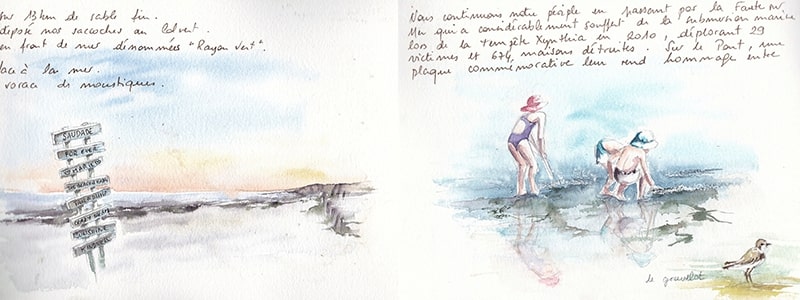 sur 13 km de sable fin.
déposé nos sacoches au Calvert.
en front de mer dénommées "Rayon Vert".
face à la mer.
voraces de moustiques.
SAUDADE
FOR EVER
SUNSHINE
Nous continuons notre périple en passant par la Faute sur
Mer qui a considérablement souffert de la submersion marine
lors de la tempête Xynthia en 2010, déplorant 29
victimes et 674 maisons détruites. Sur le Pont, une
plaque commémorative leur rend hommage entre
le gravelot